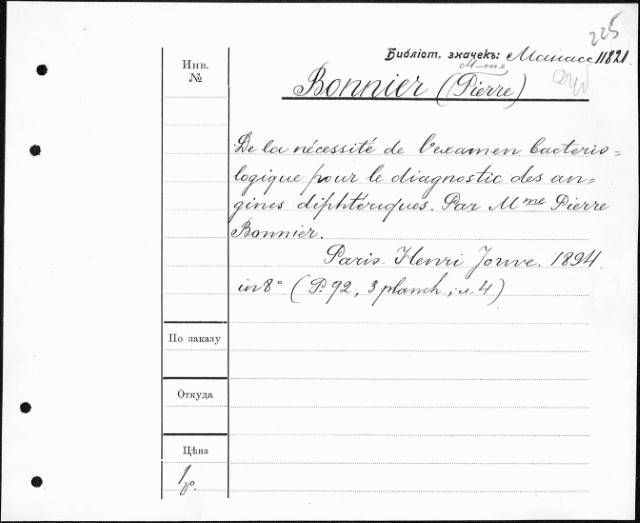 225
Библіот. значекъ: 11821
Инв.
№
Mme
Bonnier (Pierre)
De la nécessité de l'examen bacterio=
logique pour le diagnostic des an=
gines diphtériques. Par Mme Pierre
Bonnier.
Paris. Henri Jouve. 1894.
in 8° (P. 92, 3 planch, 4)
По заказу
Откуда
Цѣна
1 р.